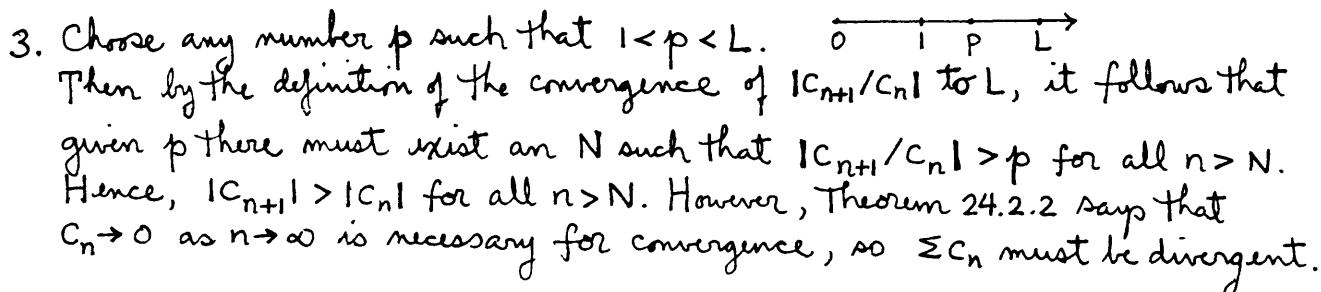 3. Choose any number p such that 1<p<L. 0 1 p L
Then by the definition of the convergence of |Cn+1/Cn| to L, it follows that
given p there must exist an N such that |Cn+1/Cn| >p for all n> N.
Hence, |Cn+1| > |Cn| for all n>N. However, Theorem 24.2.2 says that
Cn→0 as n→∞ is necessary for convergence, so ΣCn must be divergent.